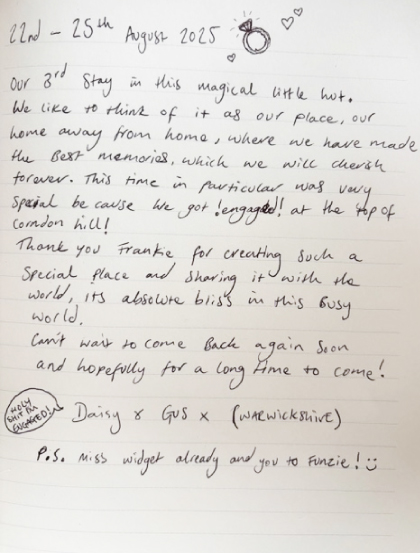 22nd - 25th August 2025
Our 3rd Stay in this magical little hut.
We like to think of it as our place, our
home away from home, where we have made
the Best memories, which we will cherish
forever. This time in particular was very
special because we got !engaged! at the top of
corndon hill!
Thank you Frankie for creating such a
Special place and sharing it with the
world, its absolute bliss in this Busy
world.
Can't wait to come Back again soon
and hopefully for a long time to come!
HOLY
SHIT I'M
ENGAGED!
Daisy & Gus x (WARWICKSHIRE)
P.S. miss widget already and you to Funzie!